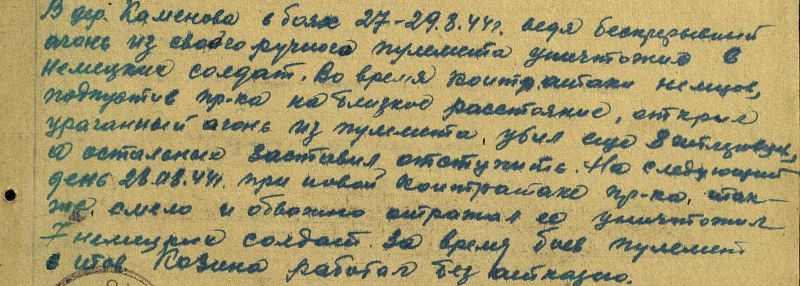 В дер. Каменова в боях 27-29.8.44г. ведя беспрерывный
огонь из своего ручного пулемета уничтожил 6
немецких солдат. Во время контратаки немцов,
подпустив пр-ка на близкое расстояние, открыл
ураганный огонь из пулемета, убил еще 8
а остальные заставил отступить. На следующий
день 28.08.44г. при новой контратаке пр-ка, так-
же смело и отважно отражал ее уничтожил
7 немецких солдат. За время боев пулемет
Казина работал без отказно.